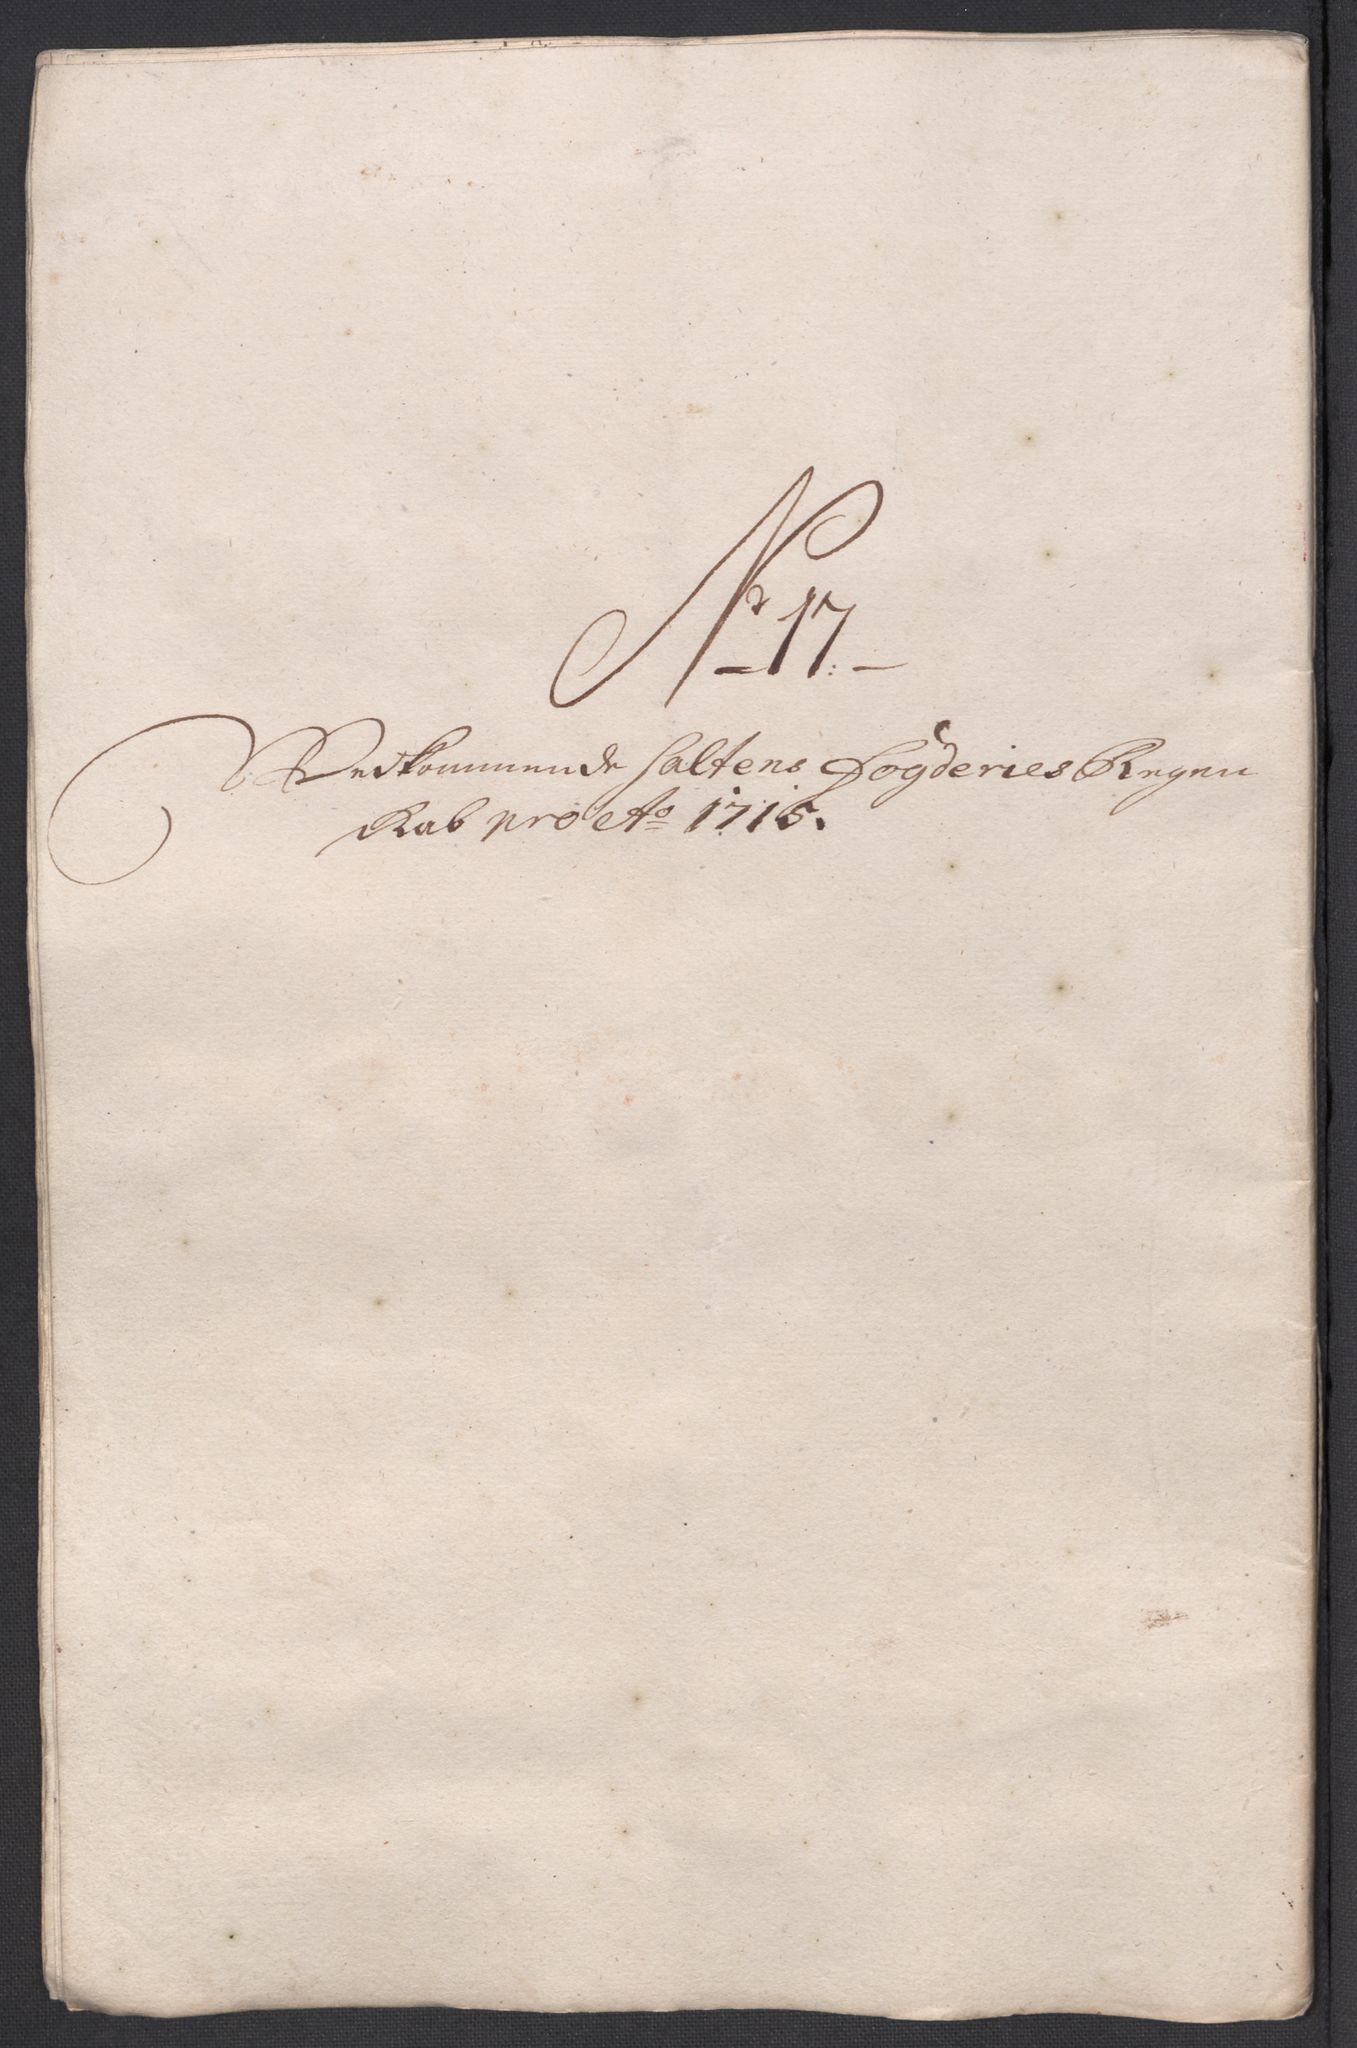 Nr 17.
Vedkommende Saltens Fogderies Regen
skab pro Ao 1715.